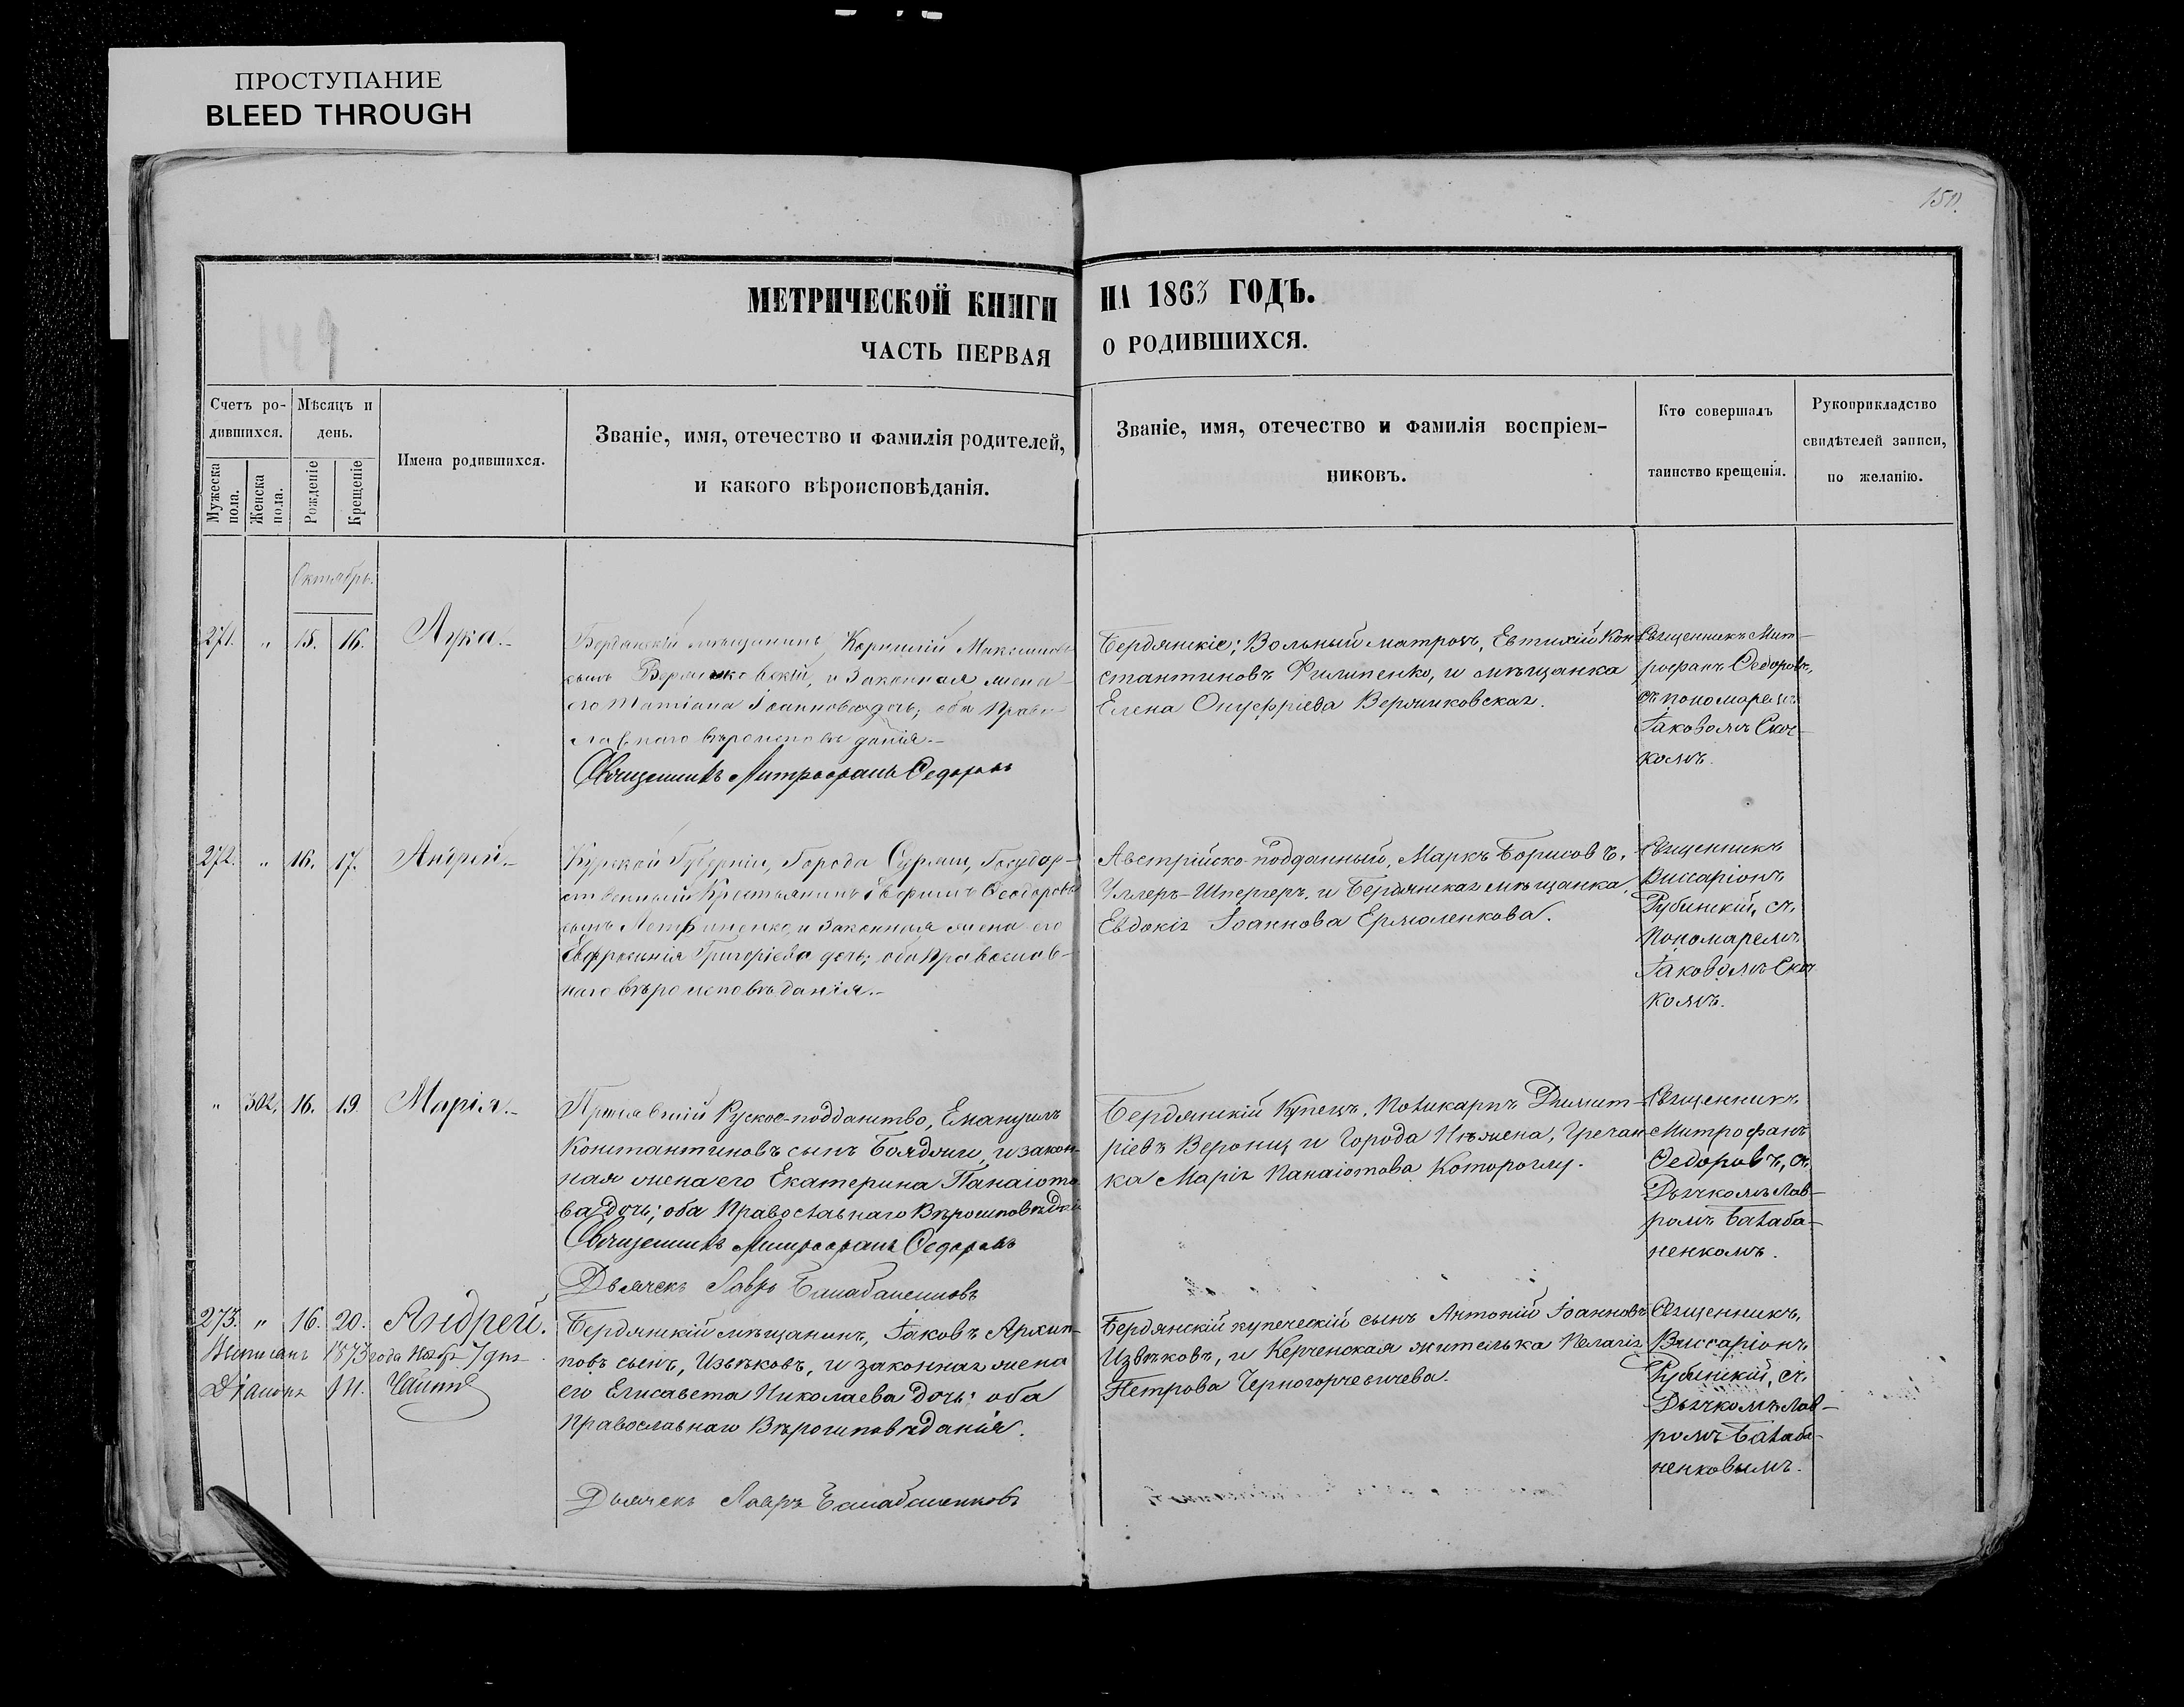 ПРОСТУПАНИЕ
BLEED THROUGH
150.
149
МЕТРИЧЕСКОЙ КНИГИ НА 1863 ГОДЪ.
ЧАСТЬ ПЕРВАЯ О РОДИВШИХСЯ.
Счетъ ро-
дившихся.
Мужеска пола.
Женска пола.
Мѣсяцъ и
день.
Рожденіе
Крещеніе
Имена родившихся.
Званіе, имя, отечество и фамилія родителей,
и какого вѣроисповѣданія.
Званіе, имя, отечество и фамилія воспріем-
никовъ.
Кто совершалъ
таинство крещенія.
Рукоприкладство
свидѣтелей записи,
по желанію.
Октябрь.
271. " 15. 16. Лука.-
Бердянскій мѣщанинъ, Корнилій Максимовъ
сынъ и законная жена
его Татіана Іоаннова дочь; оба Право-
славнаго вѣроисповѣданія.-
Священникъ Митрофанъ Федоровъ
Бердянскіе; Вольный матросъ, Евтихій Кон-
стантиновъ Филипенко, и мѣщанка
Елена Онуфріева Вермиковская.
Священникъ Мит-
рофанъ Федоровъ,
съ пономаремъ
Іаковомъ Скоч-
комъ.
272. " 16. 17. Андрей.-
Курской Губерніи, Города Суржи, Государ-
ственный Крестьянинъ Ефримъ Феодоровъ
сынъ и законная жена его
Евфросинія Григоріева дочь; оба православ-
наго вѣроисповѣданія.-
Австрійско-подданный, Маркъ Борисовъ,
и Бердянская мѣщанка,
Евдокія Іоаннова Ермоленкова.
Священникъ
Виссаріонъ
Рубинскій, съ
Пономаремъ
Іаковомъ Скоч
комъ.
" 302. 16. 19. Марія.-
Принявшій Руское-подданство, Емануилъ
Константиновъ сынъ Бояджи, и закон-
ная жена его Екатерина Панаіото-
ва дочь; оба Православнаго Вѣроисповѣдан
Священникъ Митрофанъ Федоровъ
Дьячекъ Лавръ Балабаненковъ
Бердянскій Купецъ, Поликарпъ Димит-
ріевъ и Города Нѣжена, Гречан-
ка Марія Панаіотова
Священникъ
Митрофанъ
Федоровъ, съ
Дьячкомъ Лав-
ромъ Балаба-
ненкомъ.
273. " 16. 20. Андрей.
Выписанъ 1873 года Нояб 7 дня
Бердянскій мѣщанинъ, Іаковъ Архип-
повъ сынъ, Извѣковъ, и законная жена
его Елисавета Николаева дочь; оба
Православнаго Вѣроисповѣданія.
Дьячекъ Лавръ Балабаненковъ
Бердянскій купеческій сынъ Антоній Іоанновъ
Извѣковъ, и Керченская жителька Пелагія
Петрова Черногорчевичева.
Священникъ,
Виссаріонъ
Рубинскій, съ
Дьячкомъ Лав-
ромъ Балаба-
ненковымъ.